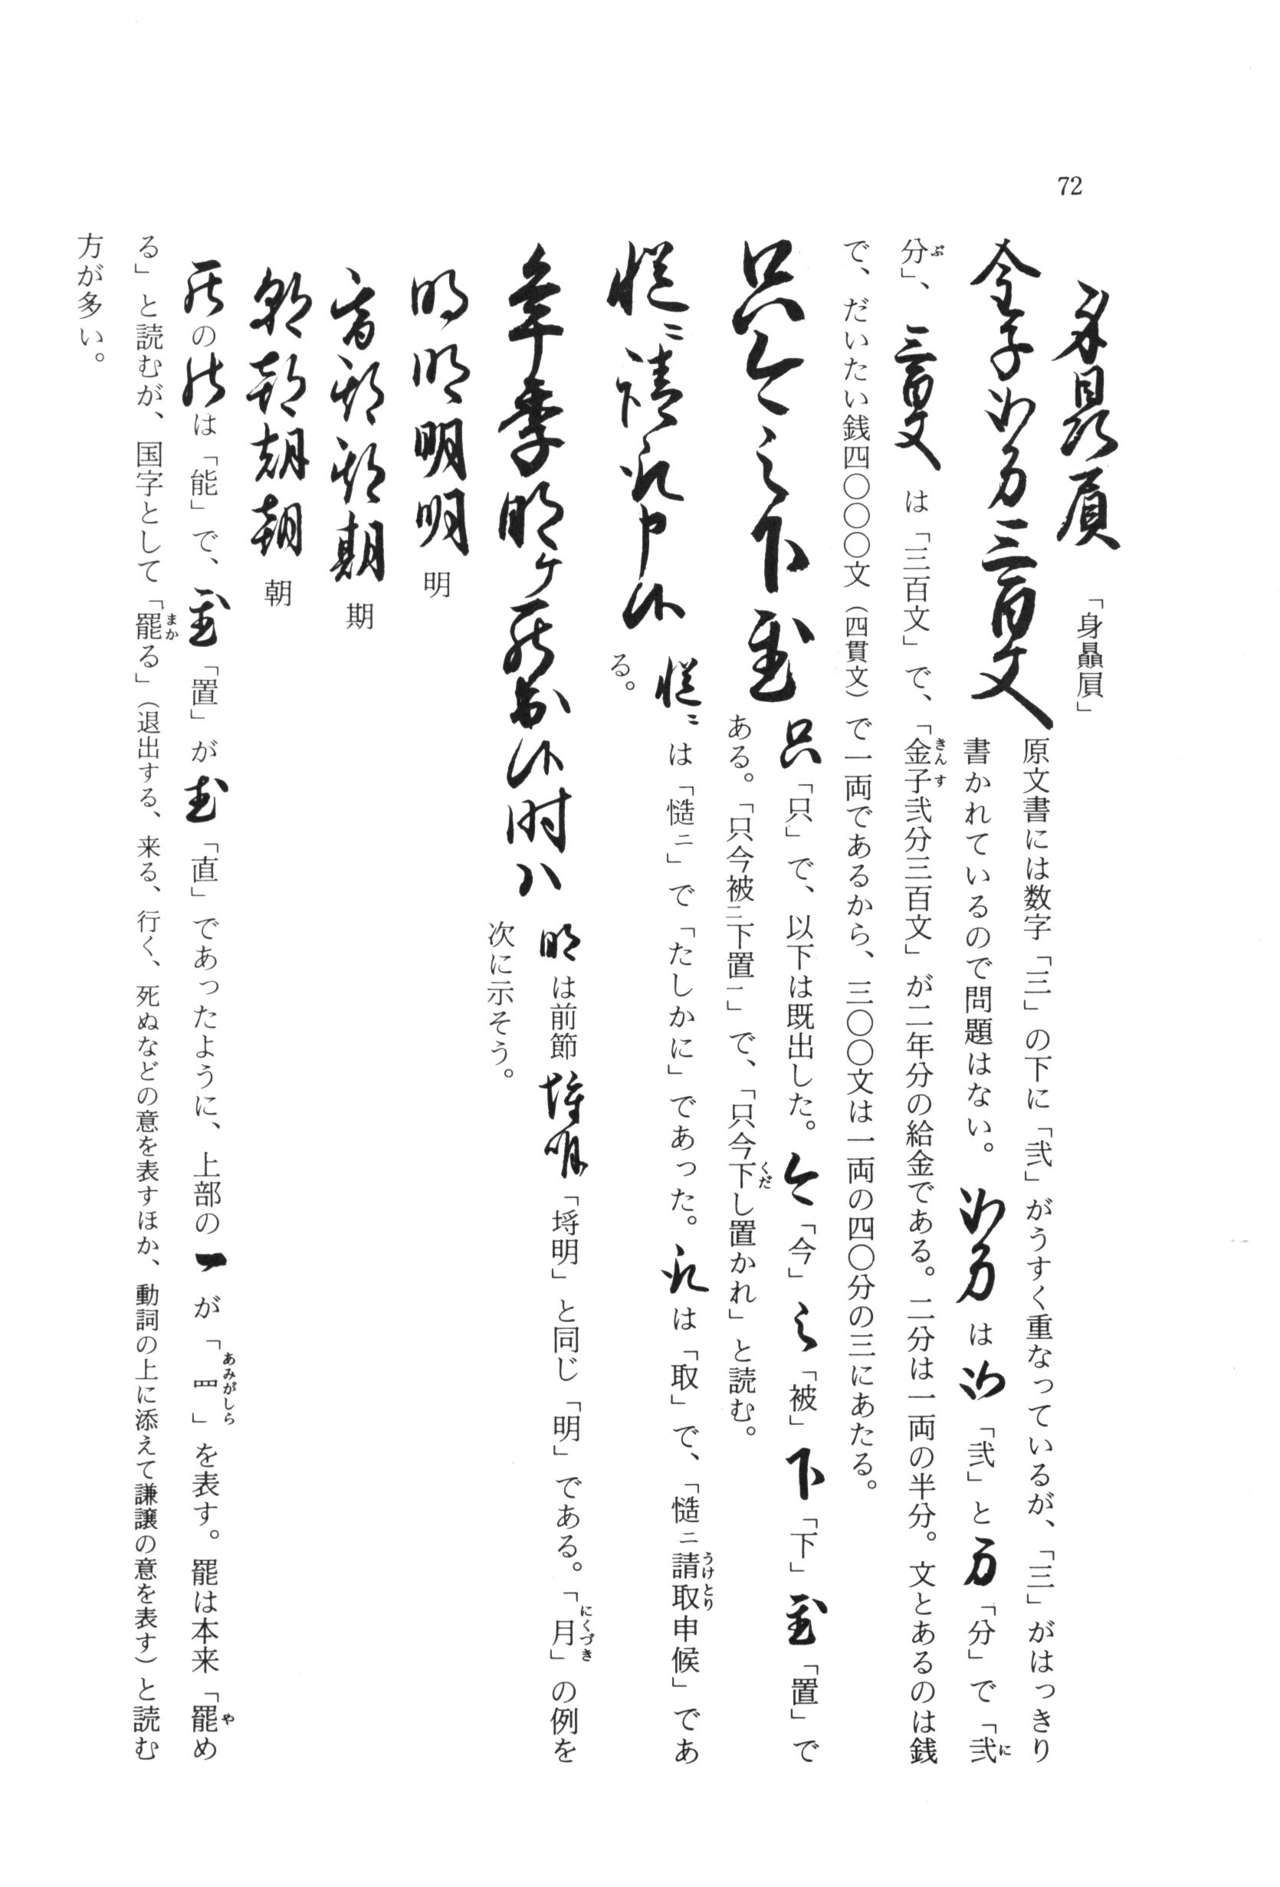 72
身贔屓
「身贔屓」
金子弐分三百文
原文書には数字「三」の下に「弐」がうすく重なっているが、「三」がはっきり
書かれているので問題はない。弐分は弐「弐」と分「分」で「弐
分」、三百文は「三百文」で、「金子弐分三百文」が二年分の給金である。二分は一両の半分。文とあるのは銭
で、だいたい銭四〇〇〇文（四貫文）で一両であるから、三〇〇文は一両の四〇分の三にあたる。
只今被下置
只「只」で、以下は既出した。今「今」被「被」下「下」置「置」で
ある。「只今被二下置一」で、「只今下し置かれ」と読む。
慥ニ請取申候
慥ニは「慥ニ」で「たしかに」であった。取は「取」で、「慥ニ請取申候」であ
る。
年季明ケ罷出候時ハ
明は前節埒明「埒明」と同じ「明」である。「月」の例を
次に示そう。
明明明明 明
期期期期 期
朝朝朝朝 朝
罷の能は「能」で、置「置」が直「直」であったように、上部の一が「罒」を表す。罷は本来「罷め
る」と読むが、国字として「罷る」（退出する、来る、行く、死ぬなどの意を表すほか、動詞の上に添えて謙譲の意を表す）と読む
方が多い。